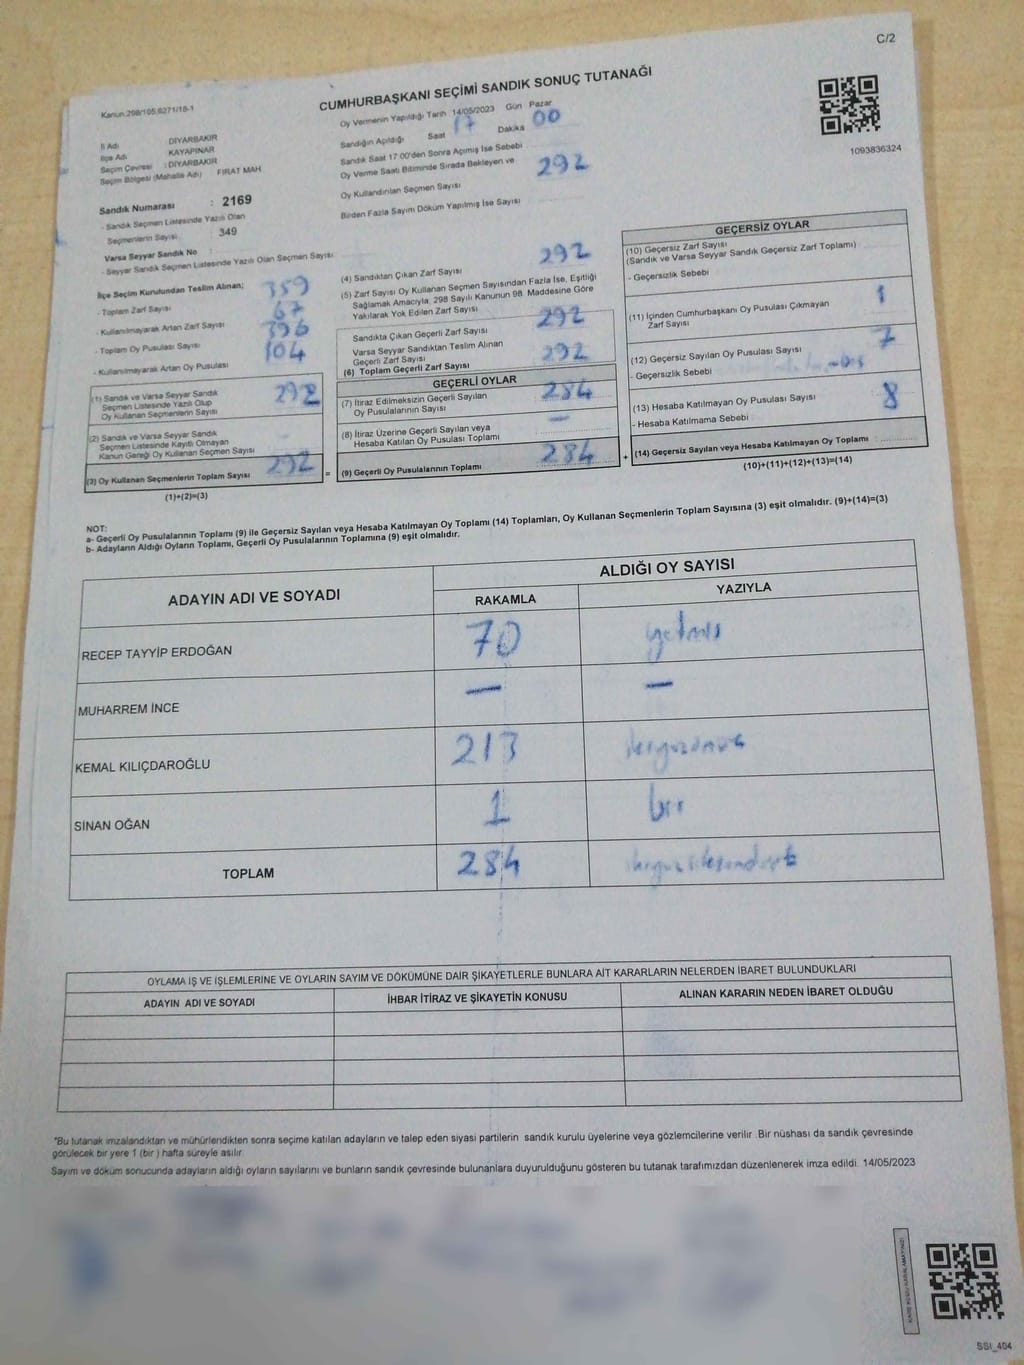 C/2
Kanun:298/105,6271/18-1
CUMHURBAŞKANI SEÇİMİ SANDIK SONUÇ TUTANAĞI
1093836324
İl Adı DİYARBAKIR
İlçe Adı KAYAPINAR
Seçim Çevresi : DİYARBAKIR
Seçim Bölgesi (Mahalle Adı) FIRAT MAH
Sandık Numarası : 2169
- Sandık Seçmen Listesinde Yazılı Olan
Seçmenlerin Sayısı : 349
Varsa Seyyar Sandık No :
- Seyyar Sandık Seçmen Listesinde Yazılı Olan Seçmen Sayısı
Oy Vermenin Yapıldığı Tarih 14/05/2023 Gün Pazar
Sandığın Açıldığı Saat 17 Dakika 00
Sandık Saat 17:00'den Sonra Açımış İse Sebebi
Oy Verme Saati Bitiminde Sırada Bekleyen ve
Oy Kullandırılan Seçmen Sayısı 292
Birden Fazla Sayım Döküm Yapılmış İse Sayısı
İlçe Seçim Kurulundan Teslim Alınan;
- Toplam Zarf Sayısı 359
- Kullanılmayarak Artan Zarf Sayısı 67
- Toplam Oy Pusulası Sayısı 396
- Kullanılmayarak Artan Oy Pusulası 104
(1) Sandık ve Varsa Seyyar Sandık
Seçmen Listesinde Yazılı Olup
Oy Kullanan Seçmenlerin Sayısı 292
(2) Sandık ve Varsa Seyyar Sandık
Seçmen Listesinde Kayıtlı Olmayan
Kanun Gereği Oy Kullanan Seçmen Sayısı
(3) Oy Kullanan Seçmenlerin Toplam Sayısı 292
(1)+(2)=(3)
(4) Sandıktan Çıkan Zarf Sayısı 292
(5) Zarf Sayısı Oy Kullanan Seçmen Sayısından Fazla İse, Eşitliği
Sağlamak Amacıyla, 298 Sayılı Kanunun 98. Maddesine Göre
Yakılarak Yok Edilen Zarf Sayısı
Sandıkta Çıkan Geçerli Zarf Sayısı 292
Varsa Seyyar Sandıktan Teslim Alınan
Geçerli Zarf Sayısı
(6) Toplam Geçerli Zarf Sayısı 292
GEÇERLİ OYLAR
(7) İtiraz Edilmeksizin Geçerli Sayılan
Oy Pusulalarının Sayısı 284
(8) İtiraz Üzerine Geçerli Sayılan veya
Hesaba Katılan Oy Pusulası Toplamı —
= (9) Geçerli Oy Pusulalarının Toplamı 284
GEÇERSİZ OYLAR
(10) Geçersiz Zarf Sayısı
(Sandık ve Varsa Seyyar Sandık Geçersiz Zarf Toplamı)
- Geçersizlik Sebebi
(11) İçinden Cumhurbaşkanı Oy Pusulası Çıkmayan
Zarf Sayısı 1
(12) Geçersiz Sayılan Oy Pusulası Sayısı 7
- Geçersizlik Sebebi
(13) Hesaba Katılmayan Oy Pusulası Sayısı
- Hesaba Katılmama Sebebi 8
+ (14) Geçersiz Sayılan veya Hesaba Katılmayan Oy Toplamı :
(10)+(11)+(12)+(13)=(14)
NOT:
a- Geçerli Oy Pusulalarının Toplamı (9) ile Geçersiz Sayılan veya Hesaba Katılmayan Oy Toplamı (14) Toplamları, Oy Kullanan Seçmenlerin Toplam Sayısına (3) eşit olmalıdır. (9)+(14)=(3)
b- Adayların Aldığı Oyların Toplamı, Geçerli Oy Pusulalarının Toplamına (9) eşit olmalıdır.
ADAYIN ADI VE SOYADI
ALDIĞI OY SAYISI
RAKAMLA YAZIYLA
RECEP TAYYİP ERDOĞAN 70 yetmis
MUHARREM İNCE — —
KEMAL KILIÇDAROĞLU 213
SİNAN OĞAN 1 bir
TOPLAM 284
OYLAMA İŞ VE İŞLEMLERİNE VE OYLARIN SAYIM VE DÖKÜMÜNE DAİR ŞİKAYETLERLE BUNLARA AİT KARARLARIN NELERDEN İBARET BULUNDUKLARI
ADAYIN ADI VE SOYADI İHBAR İTİRAZ VE ŞİKAYETİN KONUSU ALINAN KARARIN NEDEN İBARET OLDUĞU
"Bu tutanak imzalandıktan ve mühürlendikten sonra seçime katılan adayların ve talep eden siyasi partilerin sandık kurulu üyelerine veya gözlemcilerine verilir. Bir nüshası da sandık çevresinde
görülecek bir yere 1 (bir ) hafta süreyle asılır.
Sayım ve döküm sonucunda adayların aldığı oyların sayılarını ve bunların sandık çevresinde bulunanlara duyurulduğunu gösteren bu tutanak tarafımızdan düzenlenerek imza edildi. 14/05/2023
SSI_404